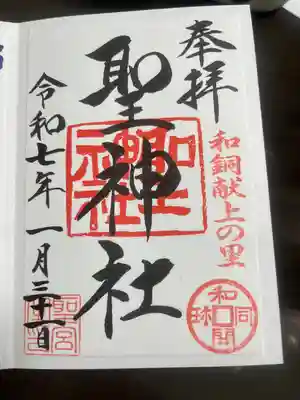 奉拝
和銅献上の里
聖神社
聖神社
和同開珎
令和七年一月三十一日